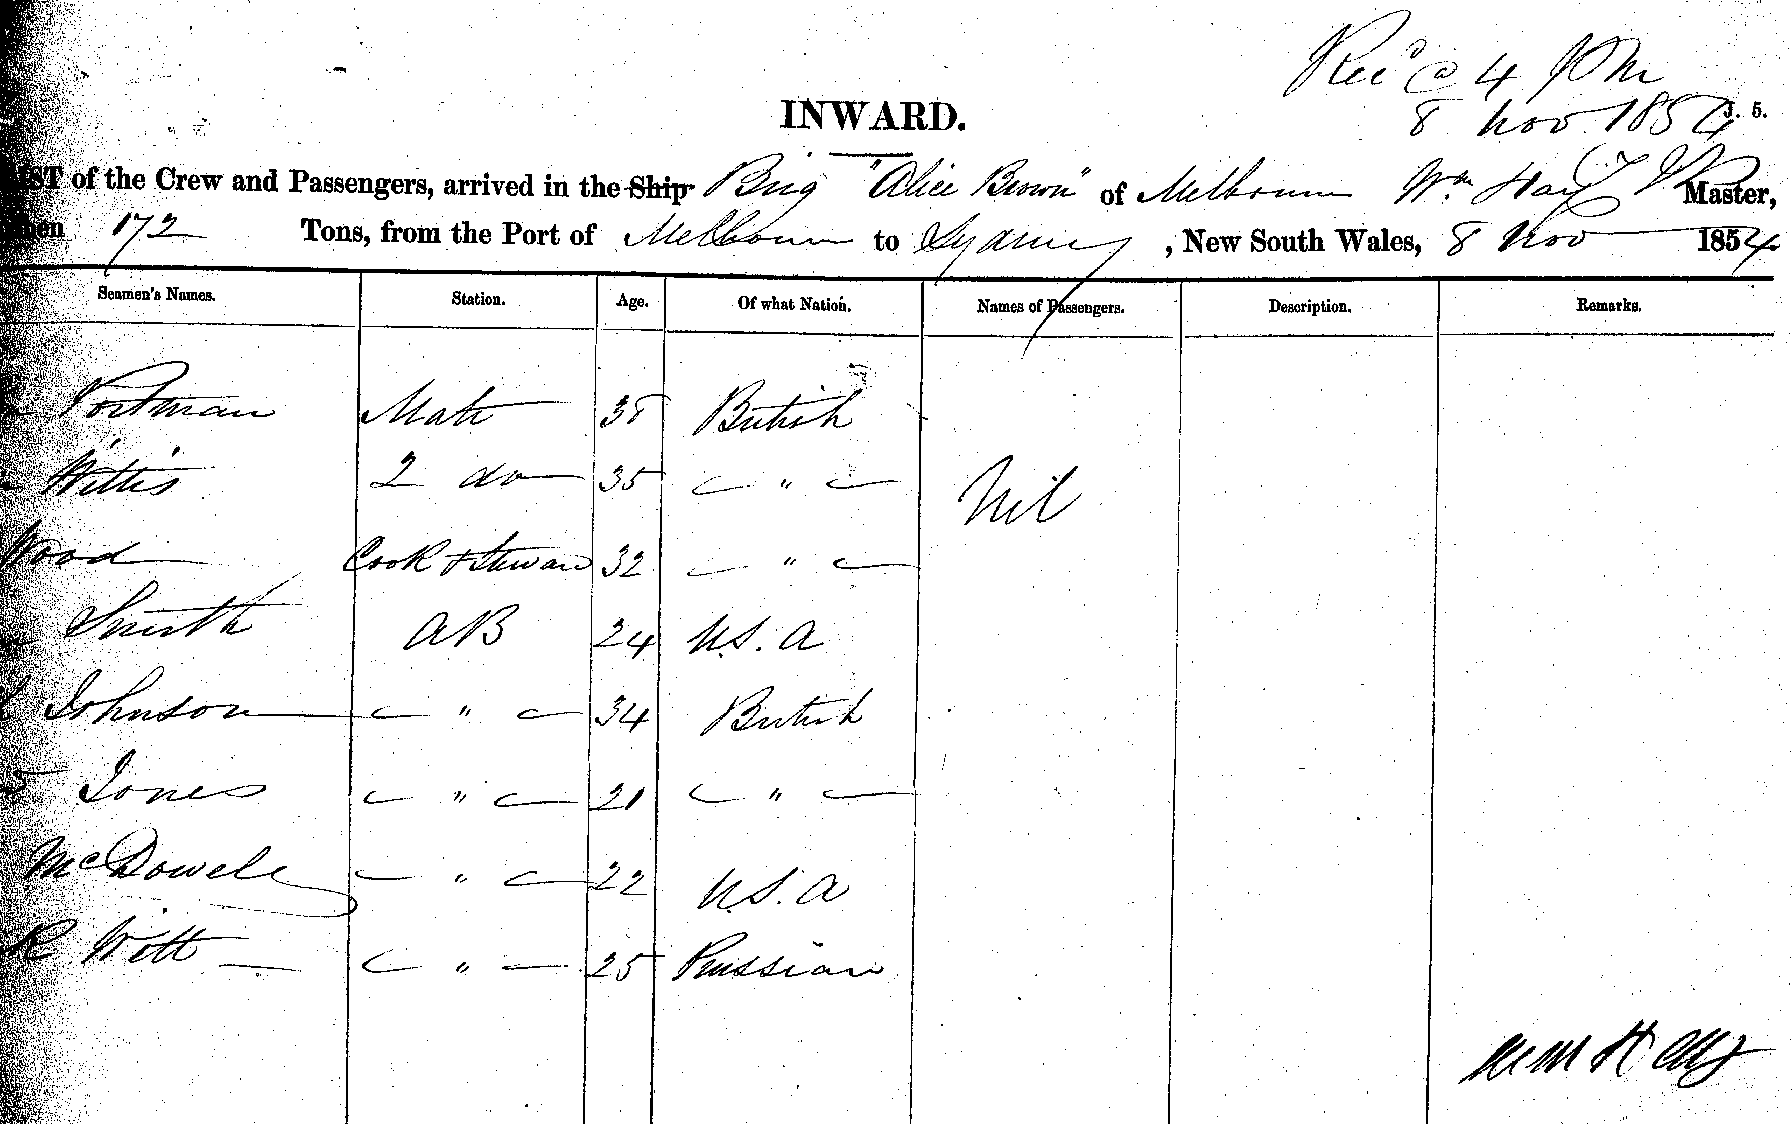 Rec'd @ 4 PM
8 Nov 1854
J. 5.
INWARD.
LIST of the Crew and Passengers, arrived in the Ship Brig "Alice Brown" of Melbourne Wm Hay Master,
172 Tons, from the Port of Melbourne to Sydney, New South Wales, 8 Nov 1854
Seamen's Names. Station. Age. Of what Nation. Names of Passengers. Description. Remarks.
Portman Mate 38 British
Willis 2 do 35 " Nil
Wood Cook & Steward 32 "
Smith AB 24 U.S.A
Johnson " 34 British
Jones " 21 "
McDowell " 22 U.S.A
Witt " 25 Prussian
Wm Hay